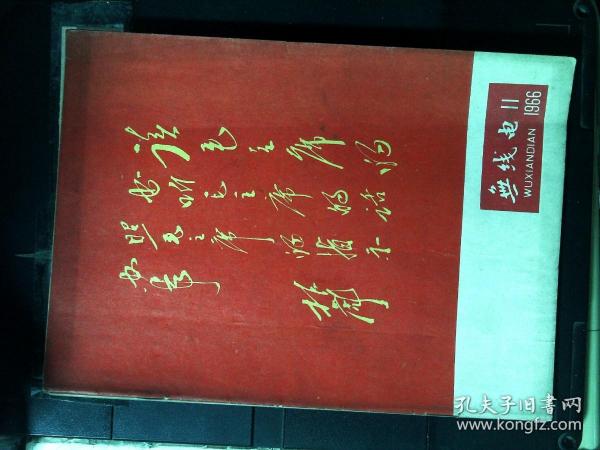 無线电 11
WUXIANDIAN 1966
读毛主席的
书听毛主席的话
按照毛主席的指示
办事 林彪
孔夫子旧书网
www.kongfz.com